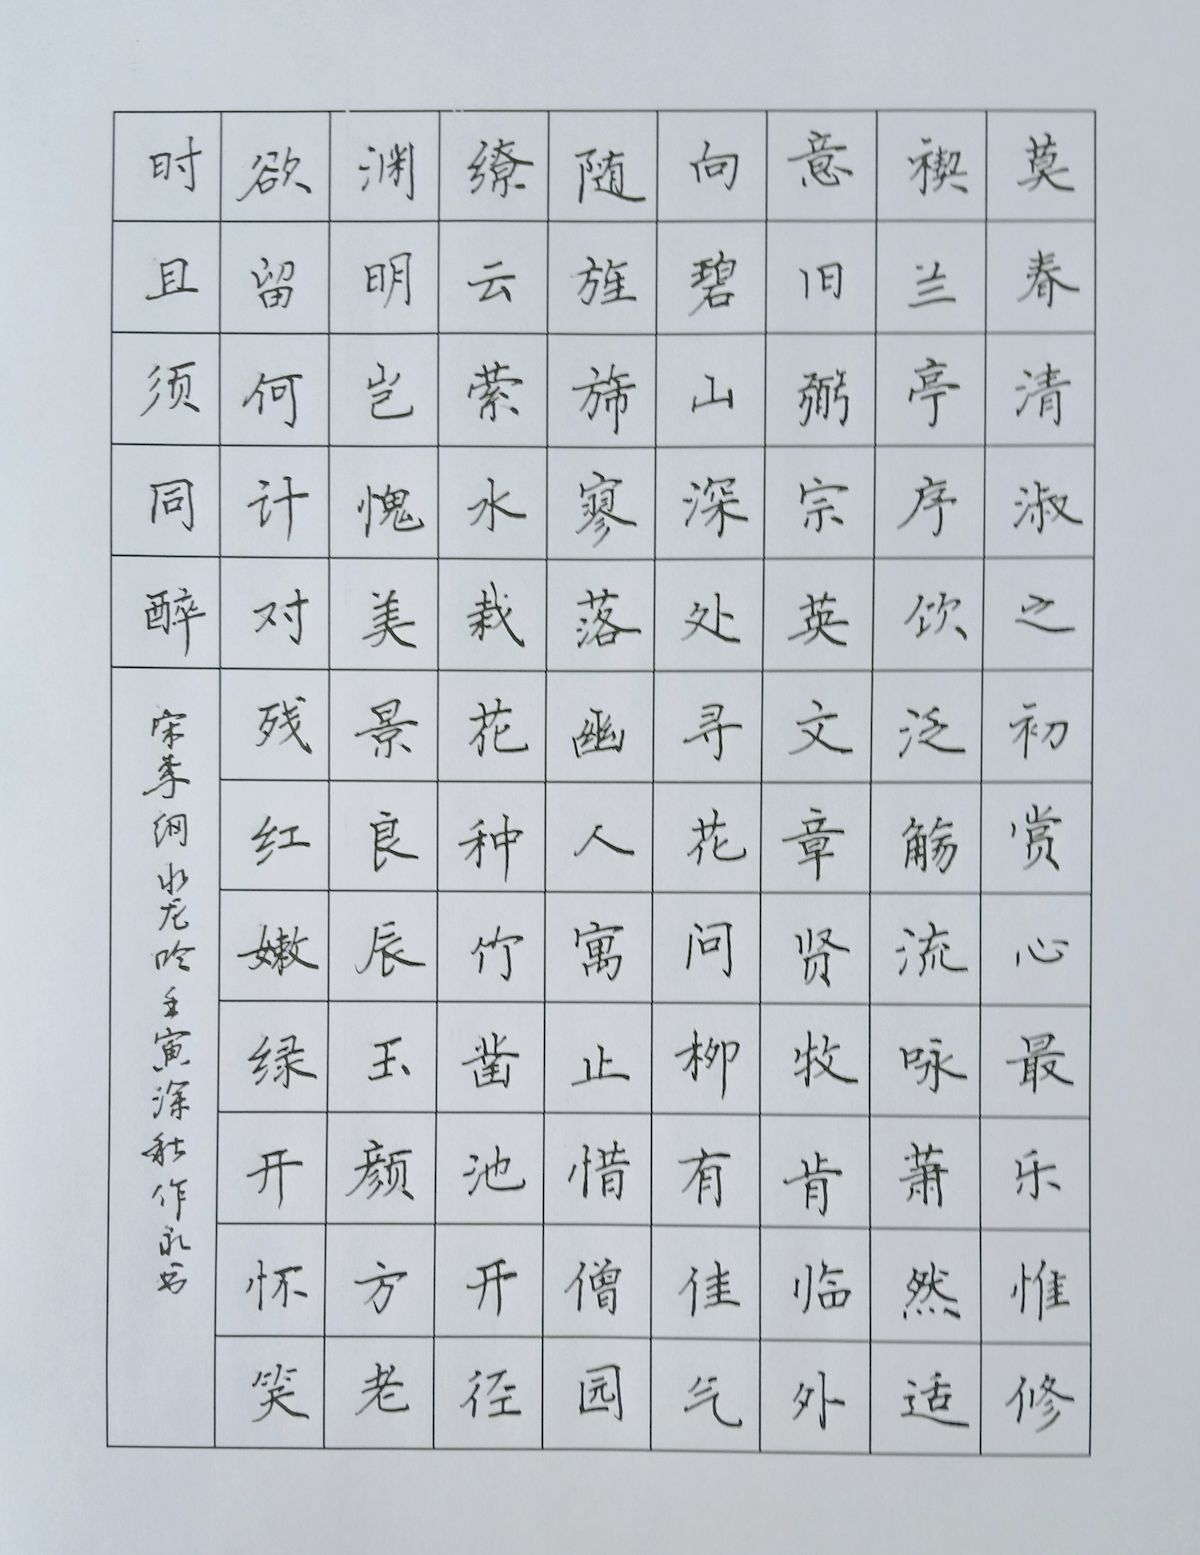 莫春清淑之初赏心最乐惟修
禊兰亭序饮泛觞流咏萧然适
意旧弼宗英文章贤牧肯临外
向碧山深处寻花问柳有佳气
随旌旆寥落幽人寓止惜僧园
缭云萦水栽花种竹凿池开径
渊明岂愧美景良辰玉颜方老
欲留何计对残红嫩绿开怀笑
时且须同醉
宋李纲水龙吟壬寅深秋作永书